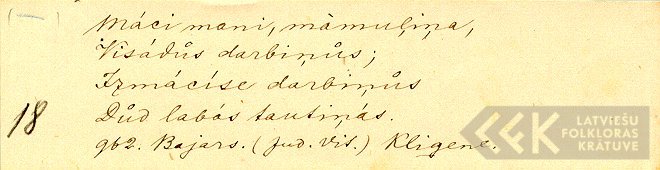 Máci mani, māmuļiņa,
Visádůs darbiņůs;
Izmácíse darbiņůs
18 Důd labós tautiņás.
962. Bajars. (jud. Vit.) Kligene.
LATVIEŠU
FOLKLORAS
KRĀTUVE